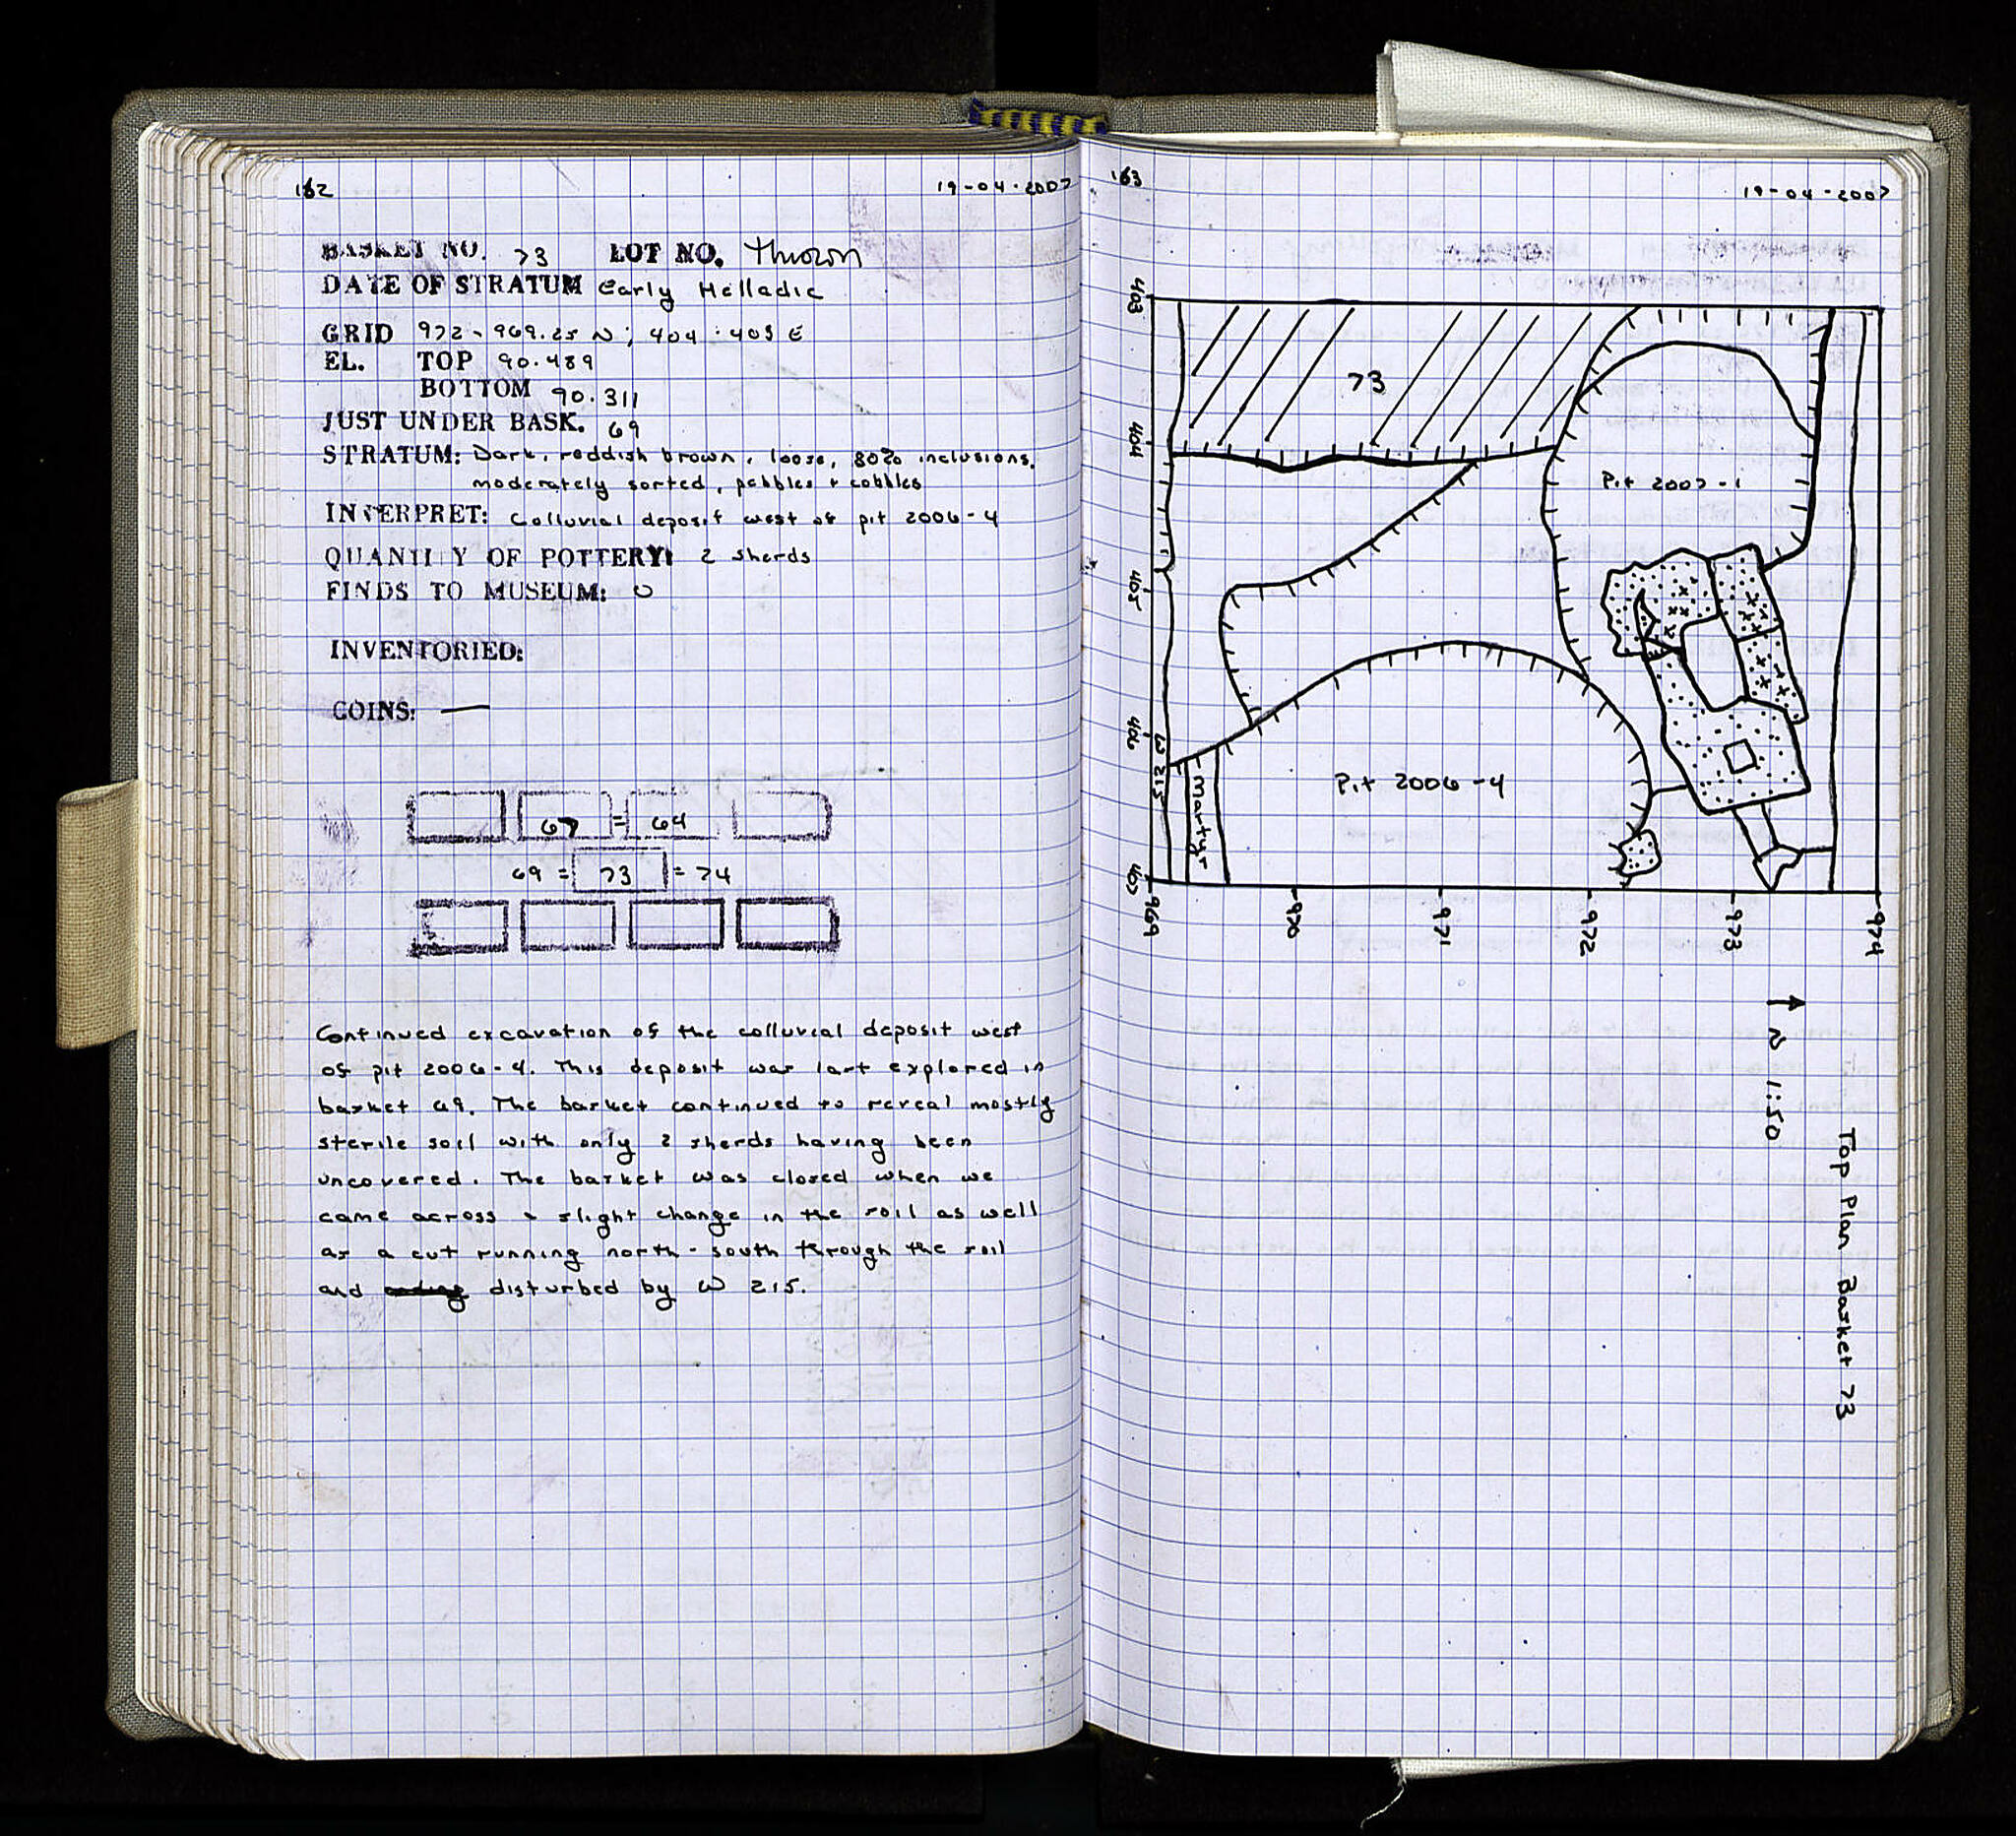 162
19-04-2007
BASKET NO. 73 LOT NO. thrown
DATE OF STRATUM Early Helladic
GRID 972-969.25 N; 404-403 E
EL. TOP 90.489
BOTTOM 90.311
JUST UNDER BASK. 69
STRATUM: Dark, reddish brown, loose, 80% inclusions,
moderately sorted, pebbles + cobbles
INTERPRET: Colluvial deposit west of pit 2006-4
QUANTITY OF POTTERY: 2 sherds
FINDS TO MUSEUM: 0
INVENTORIED:
COINS: —
67 = 64
69 = 73 = 74
Continued excavation of the colluvial deposit west
of pit 2006-4. This deposit was last explored in
basket 69. The basket continued to reveal mostly
sterile soil with only 2 sherds having been
uncovered. The basket was closed when we
came across a slight change in the soil as well
as a cut running north-south through the soil
and disturbed by W 215.
163
19-04-2007
403
404
405
406
407
73
Pit 2007-1
Pit 2006-4
W 215
martyr
969
970
971
972
973
974
N 1:50
Top Plan Basket 73